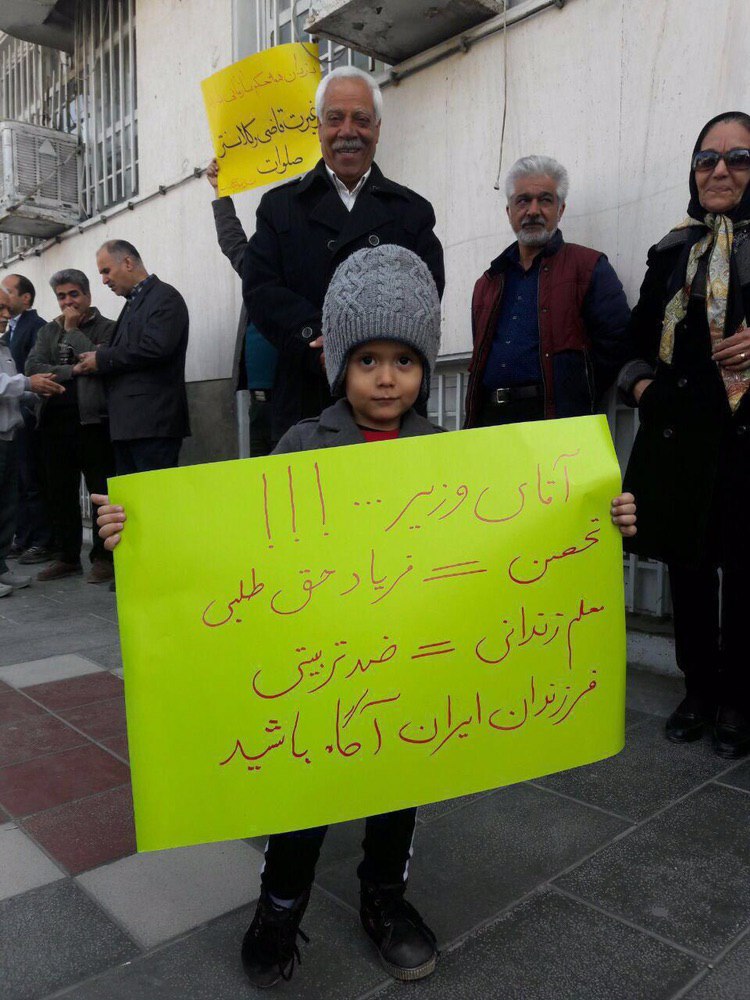 غیرت قاضی کلانتر
صلوات
آقای وزیر ... !!!
تحصن = فریاد حق طلبی
معلم زندانی = ضد تربیتی
فرزندان ایران آگاه باشید